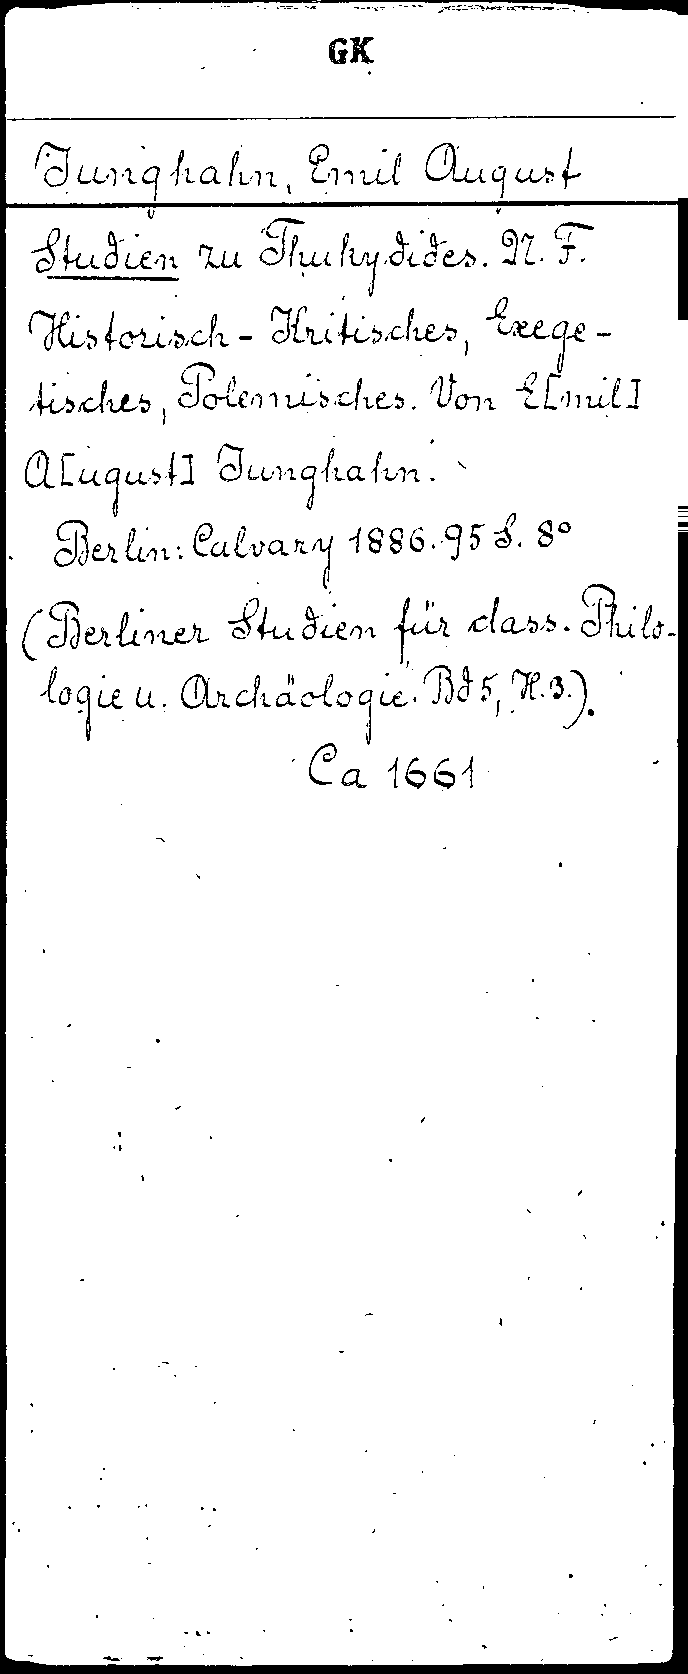 GK
Junghahn, Emil August
Studien zu Thukydides. N. F.
Historisch-Kritisches, Exege-
tisches, Polemisches. Von E[mil]
A[ugust] Junghahn.
Berlin: Calvary 1886. 95 S. 8°
(Berliner Studien für class. Philo-
logie u. Archäologie. Bd 5, H. 3.).
Ca 1661